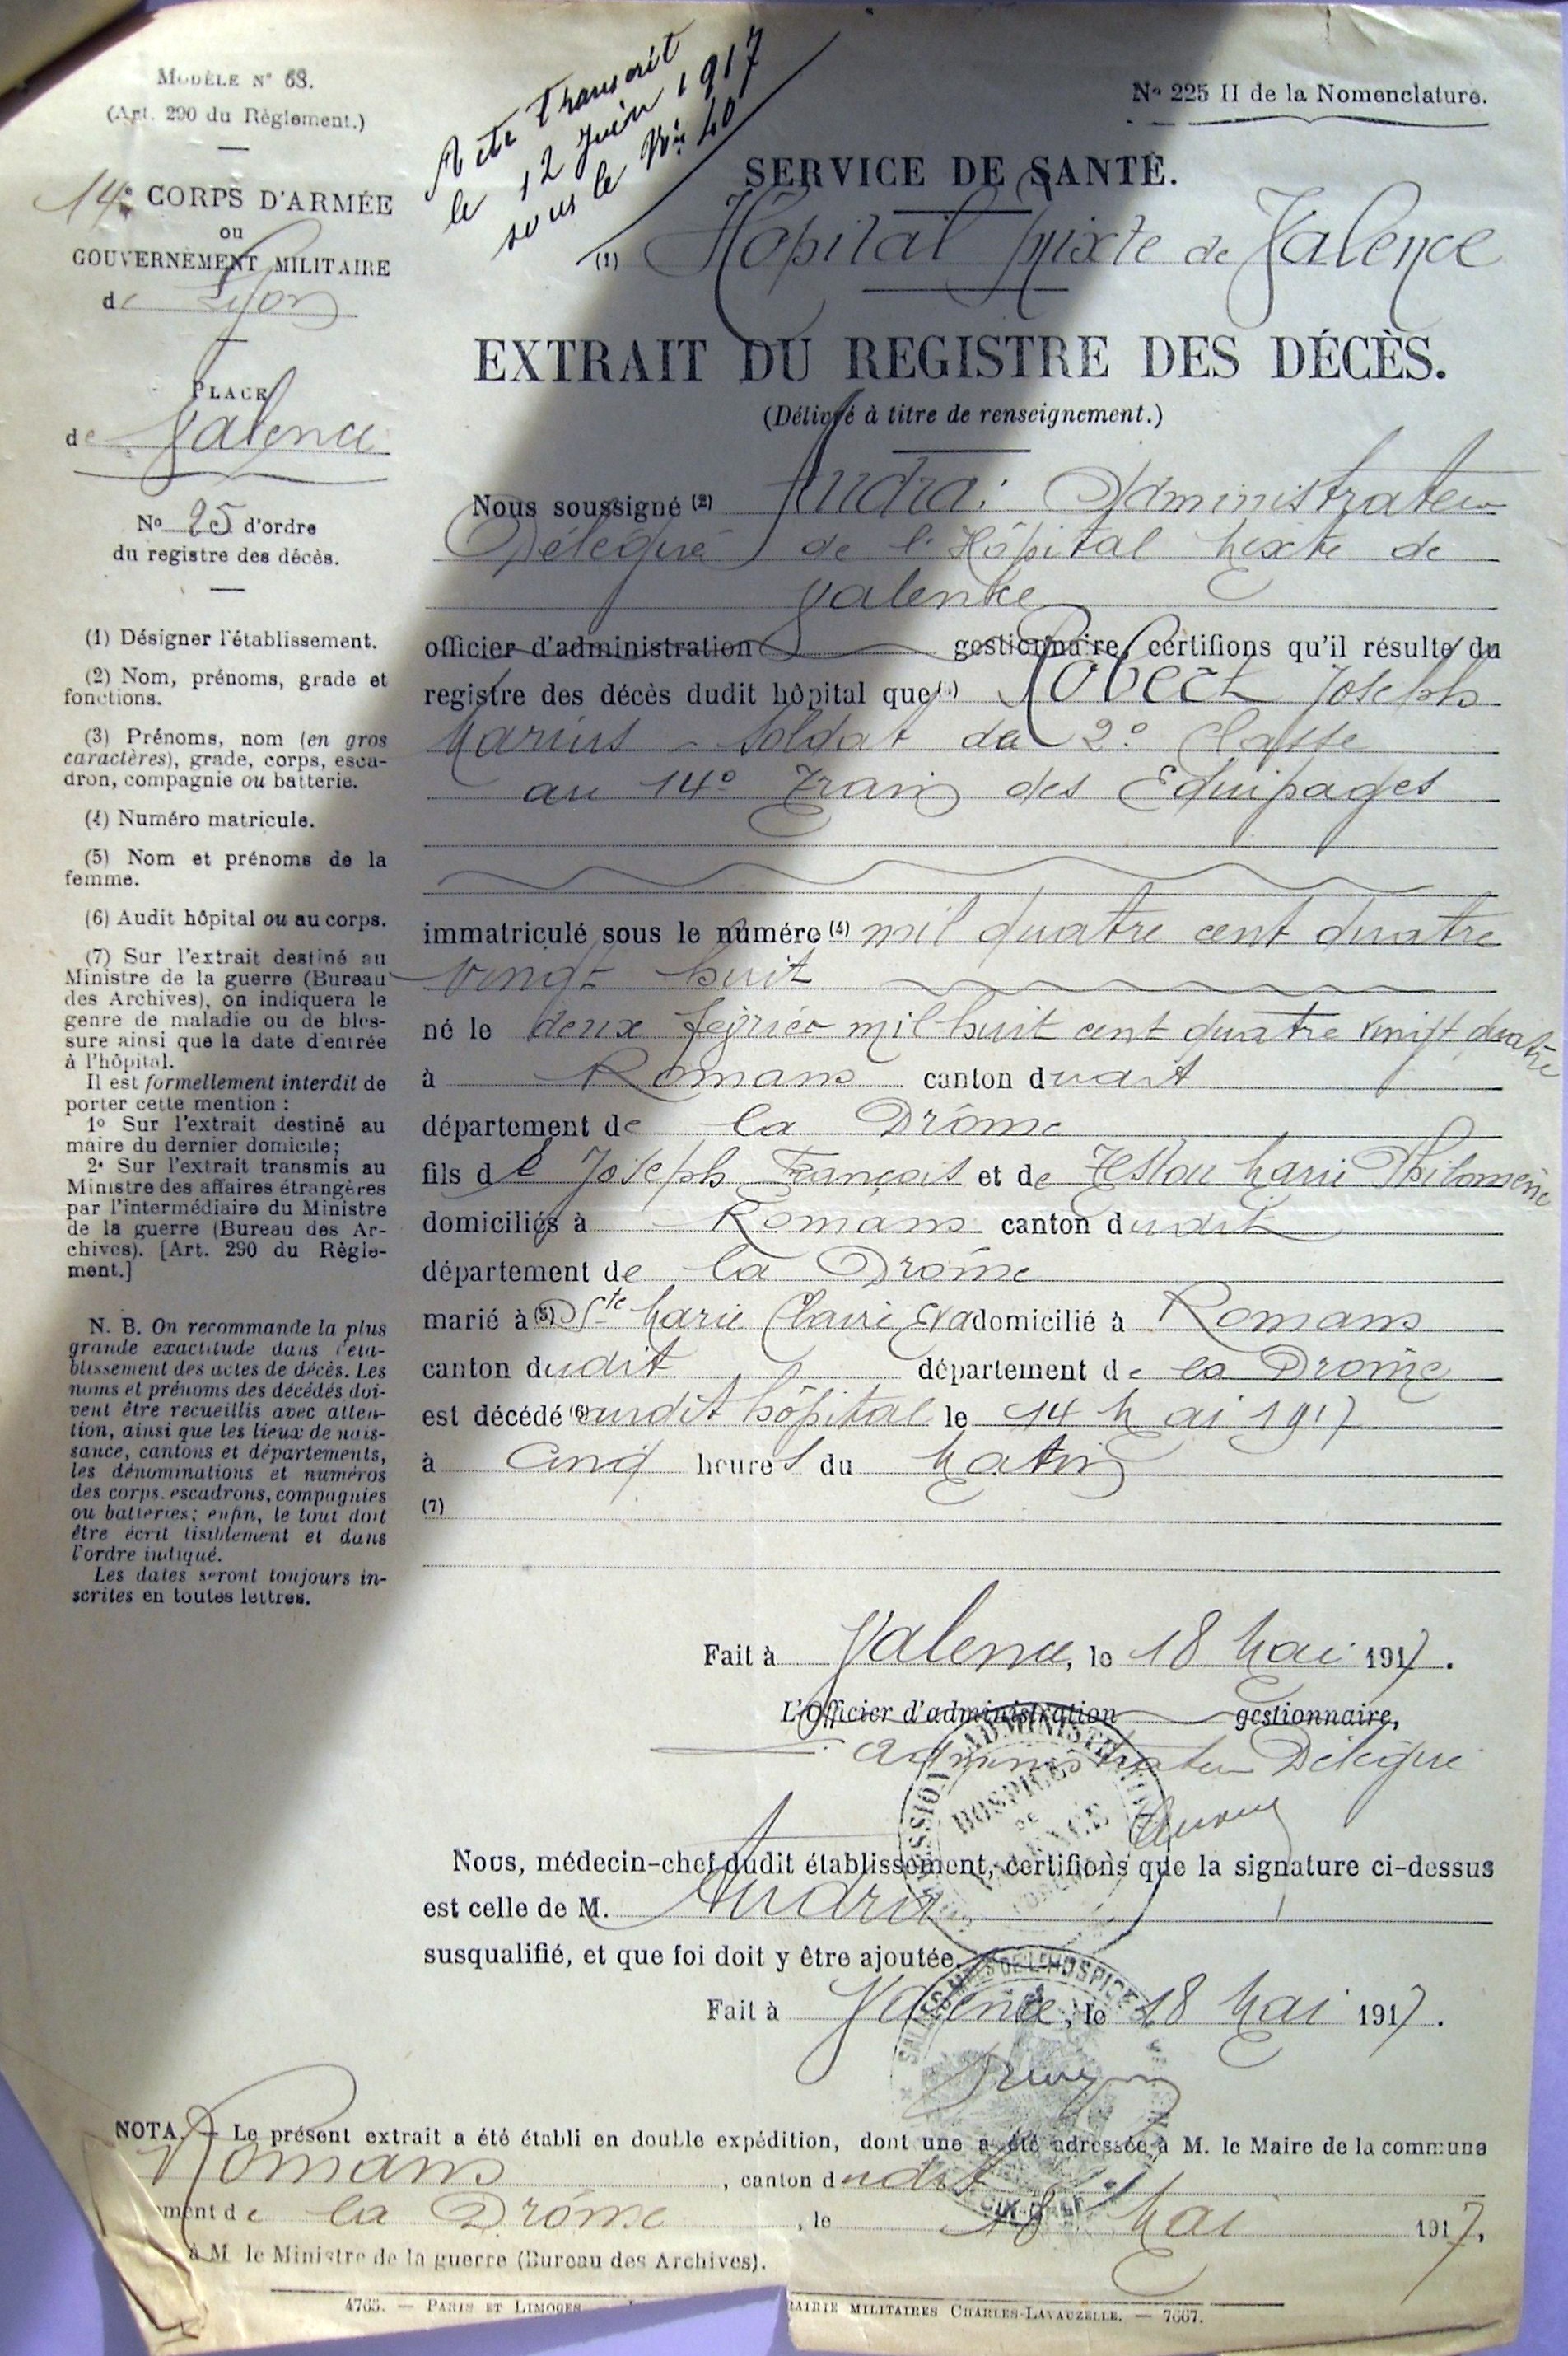 MODÈLE N° 63.
(Art. 290 du Règlement.)
14e CORPS D'ARMÉE
ou
GOUVERNEMENT MILITAIRE
de Lyon
PLACE
de Valence
No 25 d'ordre
du registre des décès.
(1) Désigner l'établissement.
(2) Nom, prénoms, grade et
fonctions.
(3) Prénoms, nom (en gros
caractères), grade, corps, esca-
dron, compagnie ou batterie.
(4) Numéro matricule.
(5) Nom et prénoms de la
femme.
(6) Audit hôpital ou au corps.
(7) Sur l'extrait destiné au
Ministre de la guerre (Bureau
des Archives), on indiquera le
genre de maladie ou de bles-
sure ainsi que la date d'entrée
à l'hôpital.
Il est formellement interdit de
porter cette mention :
1o Sur l'extrait destiné au
maire du dernier domicile;
2o Sur l'extrait transmis au
Ministre des affaires étrangères
par l'intermédiaire du Ministre
de la guerre (Bureau des Ar-
chives). [Art. 290 du Règle-
ment.]
N. B. On recommande la plus
grande exactitude dans l'éta-
blissement des actes de décès. Les
noms et prénoms des décédés doi-
vent être recueillis avec atten-
tion, ainsi que les lieux de nais-
sance, cantons et départements,
les dénominations et numéros
des corps, escadrons, compagnies
ou batteries; enfin, le tout doit
être écrit lisiblement et dans
l'ordre indiqué.
Les dates seront toujours in-
scrites en toutes lettres.
Acte transcrit
le 12 Juin 1917
sous le No 40
No 225 II de la Nomenclature.
SERVICE DE SANTÉ.
(1) Hôpital Mixte de Valence
EXTRAIT DU REGISTRE DES DÉCÈS.
(Délivré à titre de renseignement.)
Nous soussigné (2) Administrateur
Délégué de l'Hôpital Mixte de
Valence
officier d'administration gestionnaire, certifions qu'il résulte du
registre des décès dudit hôpital que Robert Joseph
Marius - Soldat de 2e Classe
au 14e Train des Equipages
immatriculé sous le numéro (4) mil quatre cent quatre
vingt huit
né le deux février mil huit cent quatre vingt quatre
à Romans canton dudit
département de la Drôme
fils de Joseph François et de Marie Philomène
domiciliés à Romans canton dudit
département de la Drôme
marié à (5) Marie Claire domicilié à Romans
canton dudit département de la Drôme
est décédé (6) audit hôpital le 14 Mai 1917
à Cinq heures du Matin
(7)
Fait à Valence, le 18 Mai 1917.
L'Officier d'administration gestionnaire,
Administrateur Délégué
Nous, médecin-chef dudit établissement, certifions que la signature ci-dessus
est celle de M.
susqualifié, et que foi doit y être ajoutée.
Fait à Valence, le 18 Mai 1917.
NOTA. — Le présent extrait a été établi en double expédition, dont une a été adressée à M. le Maire de la commune
Romans, canton dudit
ment de la Drôme, le 18 Mai 1917,
à M. le Ministre de la guerre (Bureau des Archives).
4765. — PARIS ET LIMOGES
RAIRIE MILITAIRES CHARLES-LAVAUZELLE. — 7667.